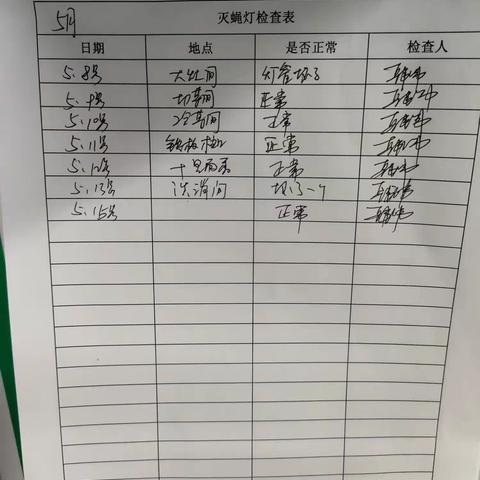 5月
灭蝇灯检查表
日期 地点 是否正常 检查人
5.8号 大灶间 灯管坏了
5.9号 切菜间 正常
5.10号 冷菜间 正常
5.11号 正常
5.12号 正常
5.13号 洗消间 坏了一个
5.15号 正常